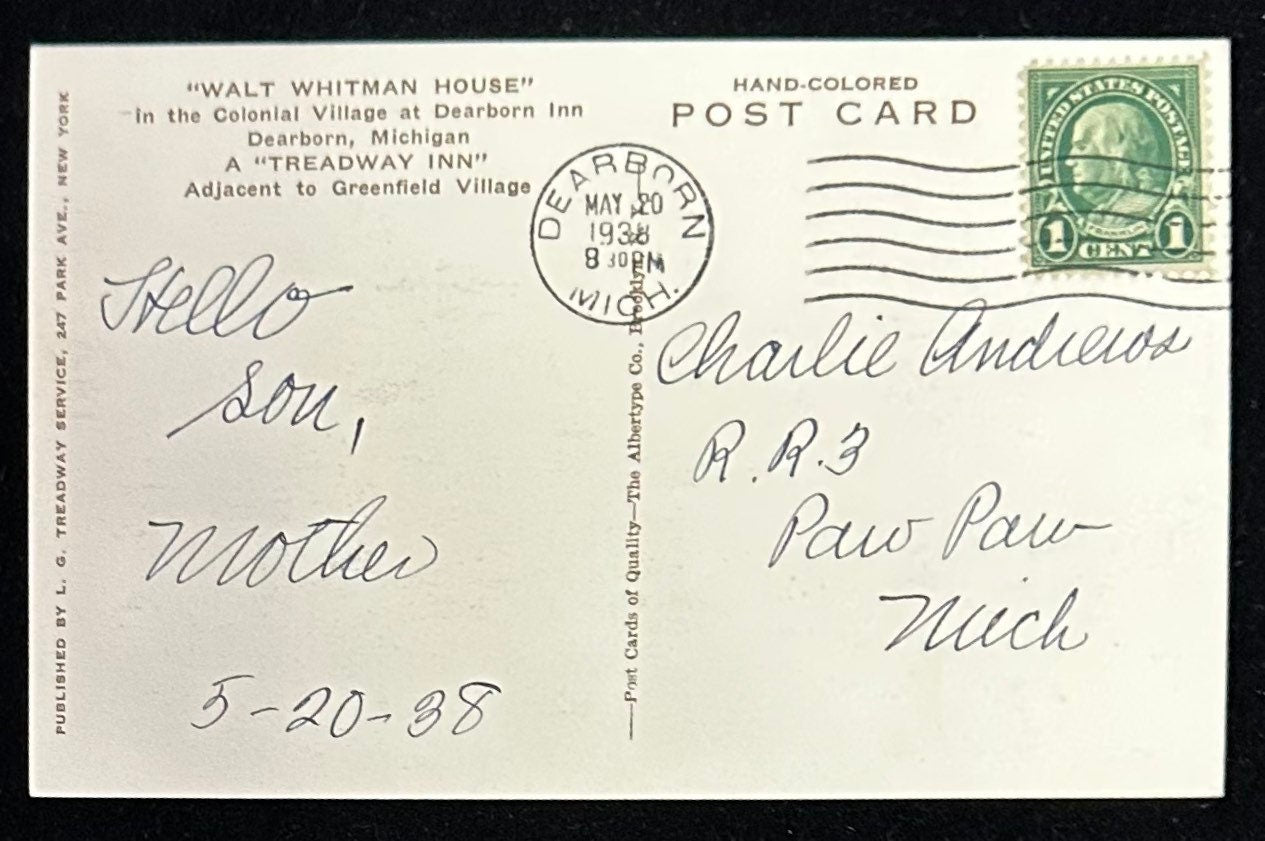 "WALT WHITMAN HOUSE"
in the Colonial Village at Dearborn Inn
Dearborn, Michigan
A "TREADWAY INN"
Adjacent to Greenfield Village
PUBLISHED BY L. G. TREADWAY SERVICE, 247 PARK AVE., NEW YORK
Hello
Son,
Mother
5-20-38
—Post Cards of Quality—The Albertype Co., Brooklyn, N. Y.
HAND-COLORED
POST CARD
DEARBORN
MAY 20
1938
8 30 PM
MICH.
UNITED STATES POSTAGE
FRANKLIN
1 CENT 1
Charlie Andrews
R. R. 3
Paw Paw
Mich